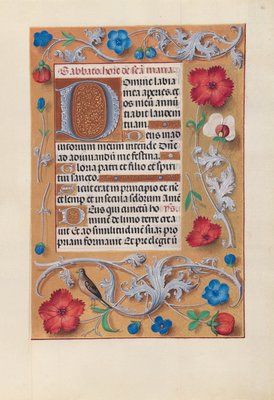 Sabbato hore de sca maria.
Domine labia
mea aperies. et
os meum annū
tiabit laudem
tuam. Deus in ad
iutorium meum intende Due
ad adiuvandū me festina.
Gloria patri et filio et spiri
tui sancto.
Sicut erat in principio et nūc
et semp et in secula seculorū amē
Deus qui cuncta ho ps.
mine de limo terre crea
uit et ad similitudinē suā pro
priam formavit Et p̄elegit u